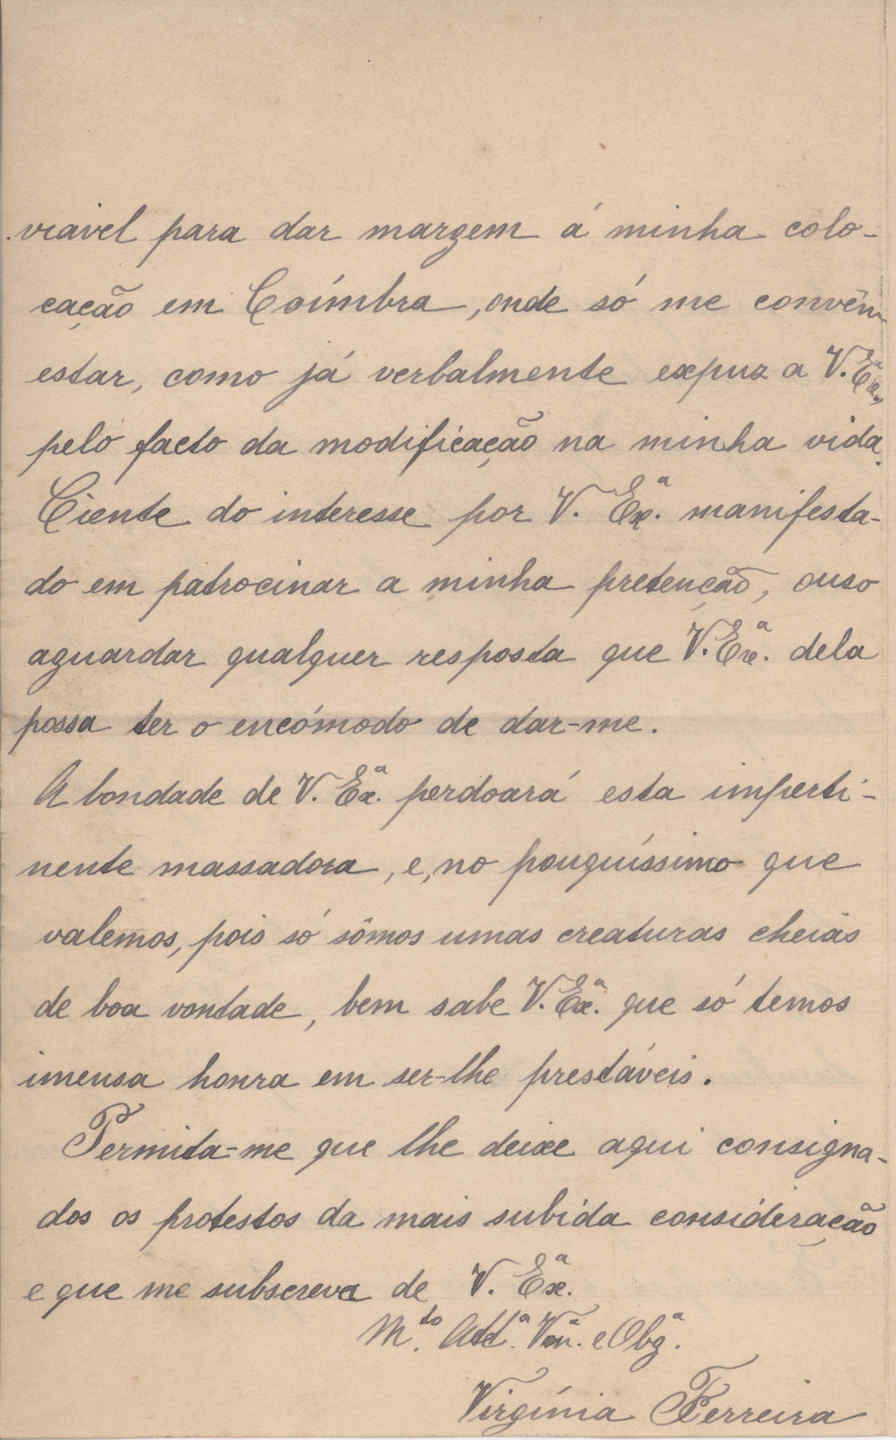 viavel para dar margem á minha colo-
cação em Coímbra, onde só me convêm
estar, como já verbalmente expuz a V. Exª.,
pelo facto da modificação na minha vida.
Ciente do interesse por V. Exª. manifesta-
do em patrocinar a minha pretenção, ouso
aguardar qualquer resposta que V. Exª. dela
possa ter o encómodo de dar-me.
A bondade de V. Exª. perdoará esta imperti-
nente massadora, e, no pouquíssimo que
valemos, pois só sômos umas creaturas cheias
de boa vontade, bem sabe V. Exª. que só temos
imensa honra em ser-lhe prestáveis.
Permita-me que lhe deixe aqui consigna-
dos os protestos da mais subida consideração
e que me subscreva de V. Exª.
M.to Attª. Venª. e Obgª.
Virgínia Ferreira